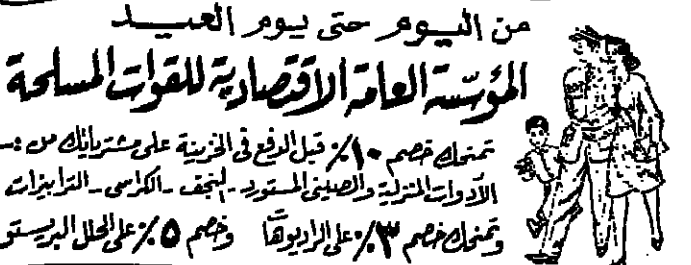 من اليوم حتى يوم العيد
المؤسسة العامة الاقتصادية للقوات المسلحة
تمنحك خصم ١٠٪ قبل الدفع فى الخزينة على مشترياتك من :-
الأدوات المنزلية والصينى المستورد - النجف - الكراسى - الترابيزات
وتمنحك خصم ٣٪ على الراديوهات وخصم ٥٪ على الحلل البريستو